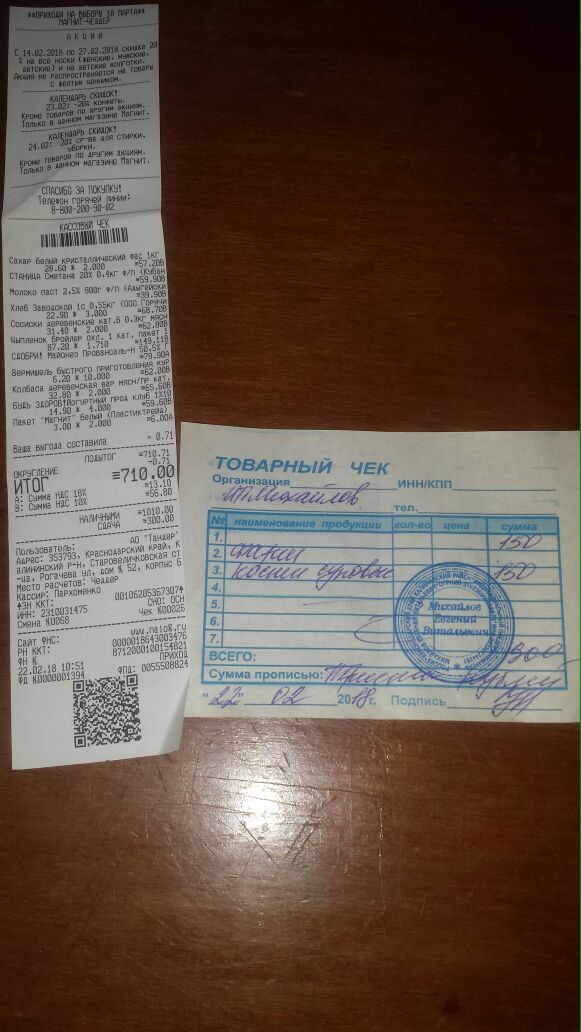 **ПРИХОДИ НА ВЫБОРЫ 18 МАРТА**
МАГНИТ-ЧЕДДЕР
АКЦИИ
С 14.02.2018 по 27.02.2018 скидка 20
% на все носки (женские, мужские,
детские) и на детские колготки.
Акция не распространяется на товары
с желтым ценником.
КАЛЕНДАРЬ СКИДОК!
23.02: -20% конфеты.
Кроме товаров по другим акциям.
Только в данном магазине Магнит.
КАЛЕНДАРЬ СКИДОК!
24.02: -20% ср-ва для стирки,
уборки.
Кроме товаров по другим акциям.
Только в данном магазине Магнит.
СПАСИБО ЗА ПОКУПКУ!
Телефон горячей линии:
8-800-200-90-02
КАССОВЫЙ ЧЕК
Сахар белый кристаллический фас 1кг
28.60 * 2.000 =57.20B
СТАНИЦА Сметана 20% 0.4кг ф/п (Кубан
=59.90B
Молоко паст 2.5% 900г ф/п (Адыгейски
=39.90B
Хлеб Заводской 1с 0,55кг (ООО Горячи
22.90 * 3.000 =68.70B
Сосиски деревенские кат.В 0.3кг мясн
31.40 * 2.000 =62.80B
Цыпленок Бройлер охл. 1 кат. пакет 1
87.20 * 1.710 =149.11B
СДОБРИ! Майонез Провансаль-Н 50,5% Г
=79.90A
Вермишель быстрого приготовления кур
6.20 * 10.000 =62.00B
Колбаса деревенская вар мясн/пр кат.
32.80 * 2.000 =65.60B
БУДЬ ЗДОРОВ!Йогуртный прод клуб 1%10
14.90 * 4.000 =59.60B
Пакет "Магнит" белый (Пластиктрейд)
3.00 * 2.000 =6.00A
Ваша выгода составила = 0.71
ПОДЫТОГ =710.71
ОКРУГЛЕНИЕ -0.71
ИТОГ =710.00
А: Сумма НДС 18% =13.10
В: Сумма НДС 10% =56.80
НАЛИЧНЫМИ =1010.00
СДАЧА =300.00
Пользователь: АО "Тандер"
Адрес: 353793, Краснодарский край, К
алининский р-н, Старовеличковская ст
-ца, Рогачева ул, дом № 52, корпус Б
Место расчетов: Чеддер
Кассир: Пархоменко
ЗН ККТ: 00106205367307
ИНН: 2310031475 СНО: ОСН
Смена №0068 Чек №00026
Сайт ФНС: www.nalog.ru
РН ККТ: 0000018643003476
ФН № 8712000100154821
ПРИХОД
22.02.18 10:51
ФД №0000001394 ФПД: 0555508824
ТОВАРНЫЙ ЧЕК
Организация ИП Михайлов ИНН/КПП
тел.
№ наименование продукции кол-во цена сумма
1. 150
2.
3. 150
4.
5.
6.
7.
ВСЕГО: 300
Сумма прописью: Триста рублей
"22" 02 2018г. Подпись
Михайлов
Евгений
Витальевич